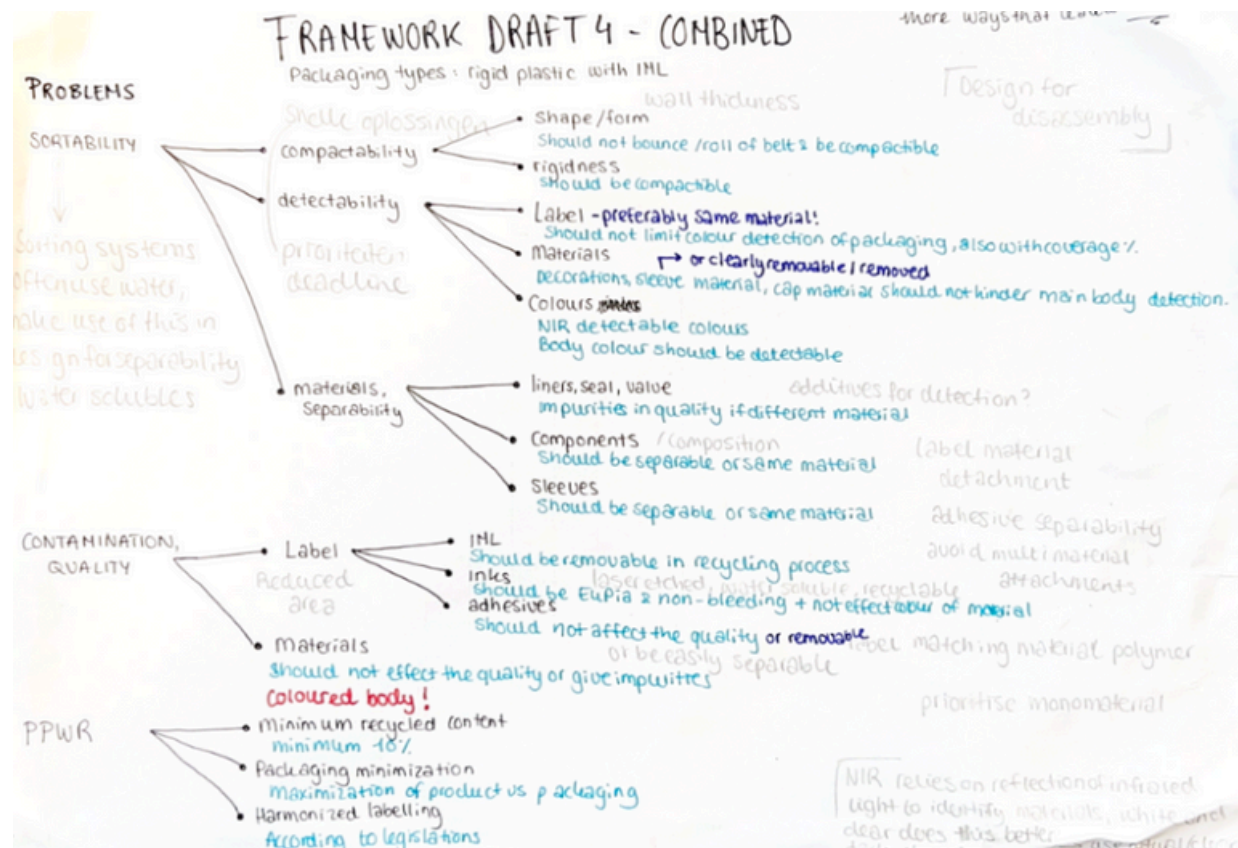 FRAMEWORK DRAFT 4 - COMBINED
more ways that
Packaging types: rigid plastic with IML
PROBLEMS
wall thickness
Design for
disassembly
SORTABILITY
Snelle oplossingen
compactability
shape/form
Should not bounce/roll of belt & be compactible
rigidness
should be compactible
detectability
Label - preferably same material!
Should not limit colour detection of packaging, also with coverage %.
Materials
or clearly removable / removed
Decorations, sleeve material, cap material should not hinder main body detection.
Colours
NIR detectable colours
Body colour should be detectable
prioriteiten
deadline
Sorting systems
often use water,
make use of this in
design for separability
water solubles
materials,
Separability
liners, seal, value
impurities in quality if different material
additives for detection?
Components / composition
Should be separable or same material
Sleeves
Should be separable or same material
label material
detachment
adhesive separability
avoid multi material
attachments
CONTAMINATION,
QUALITY
Label
Reduced
area
IML
Should be removable in recycling process
inks
laser etched, water soluble, recyclable
should be EuPia & non-bleeding + not effect colour of material
adhesives
Should not affect the quality or removable
or be easily separable
label matching material polymer
Materials
Should not effect the quality or give impuritres
coloured body!
prioritise monomaterial
PPWR
Minimum recycled content
minimum 10%
Packaging minimization
Maximization of product vs packaging
Harmonized labelling
According to legislations
NIR relies on reflection of infrared
light to identify materials, white and
clear does this better